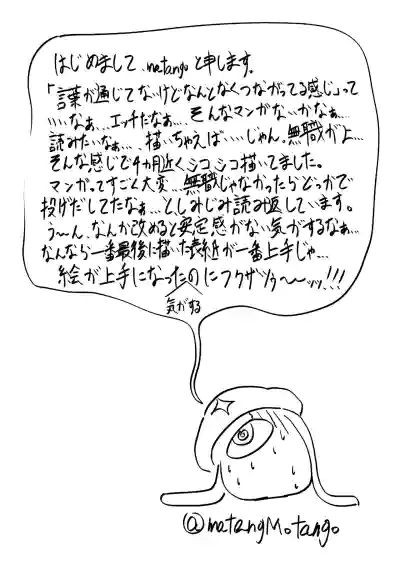 はじめまして、matangoと申します。
「言葉が通じてないけどなんとなくつながってる感じ」って
いいなぁ…エッチだなぁ…そんなマンガないかなぁ…
読みたいなぁ…描いちゃえば…いいじゃん。無職がよ…
そんな感じで4カ月近くシコシコ描いてました。
マンガってすごく大変…無職じゃなかったらどっかで
投げだしてたなぁ…としみじみ読み返しています。
う〜ん、なんか改めると安定感がない気がするなぁ…
なんなら一番最後に描いた表紙が一番上手じゃ…
絵が上手になったのにフクザツゥ〜〜ッッ!!!
気がする
@matangMotango